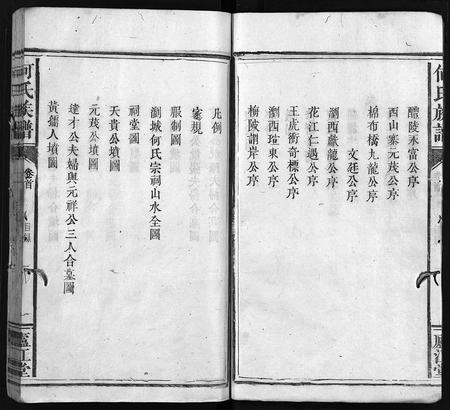 何氏族譜
醴陵永富公序
西山寨元茂公序
楊布橋九龍公序
文廷公序
瀏西獻龍公序
花江仁遇公序
王虎衝奇標公序
瀏西瑞東公序
梅陵謂岸公序
廬江堂
凡例
家規
服制圖
瀏城何氏宗祠山水全圖
祠堂圖
天貴公墳圖
元茂公墳圖
達才公夫婦與元祥公三人合墓圖
黃孺人墳圖
何氏族譜
卷首
目錄
廬江堂